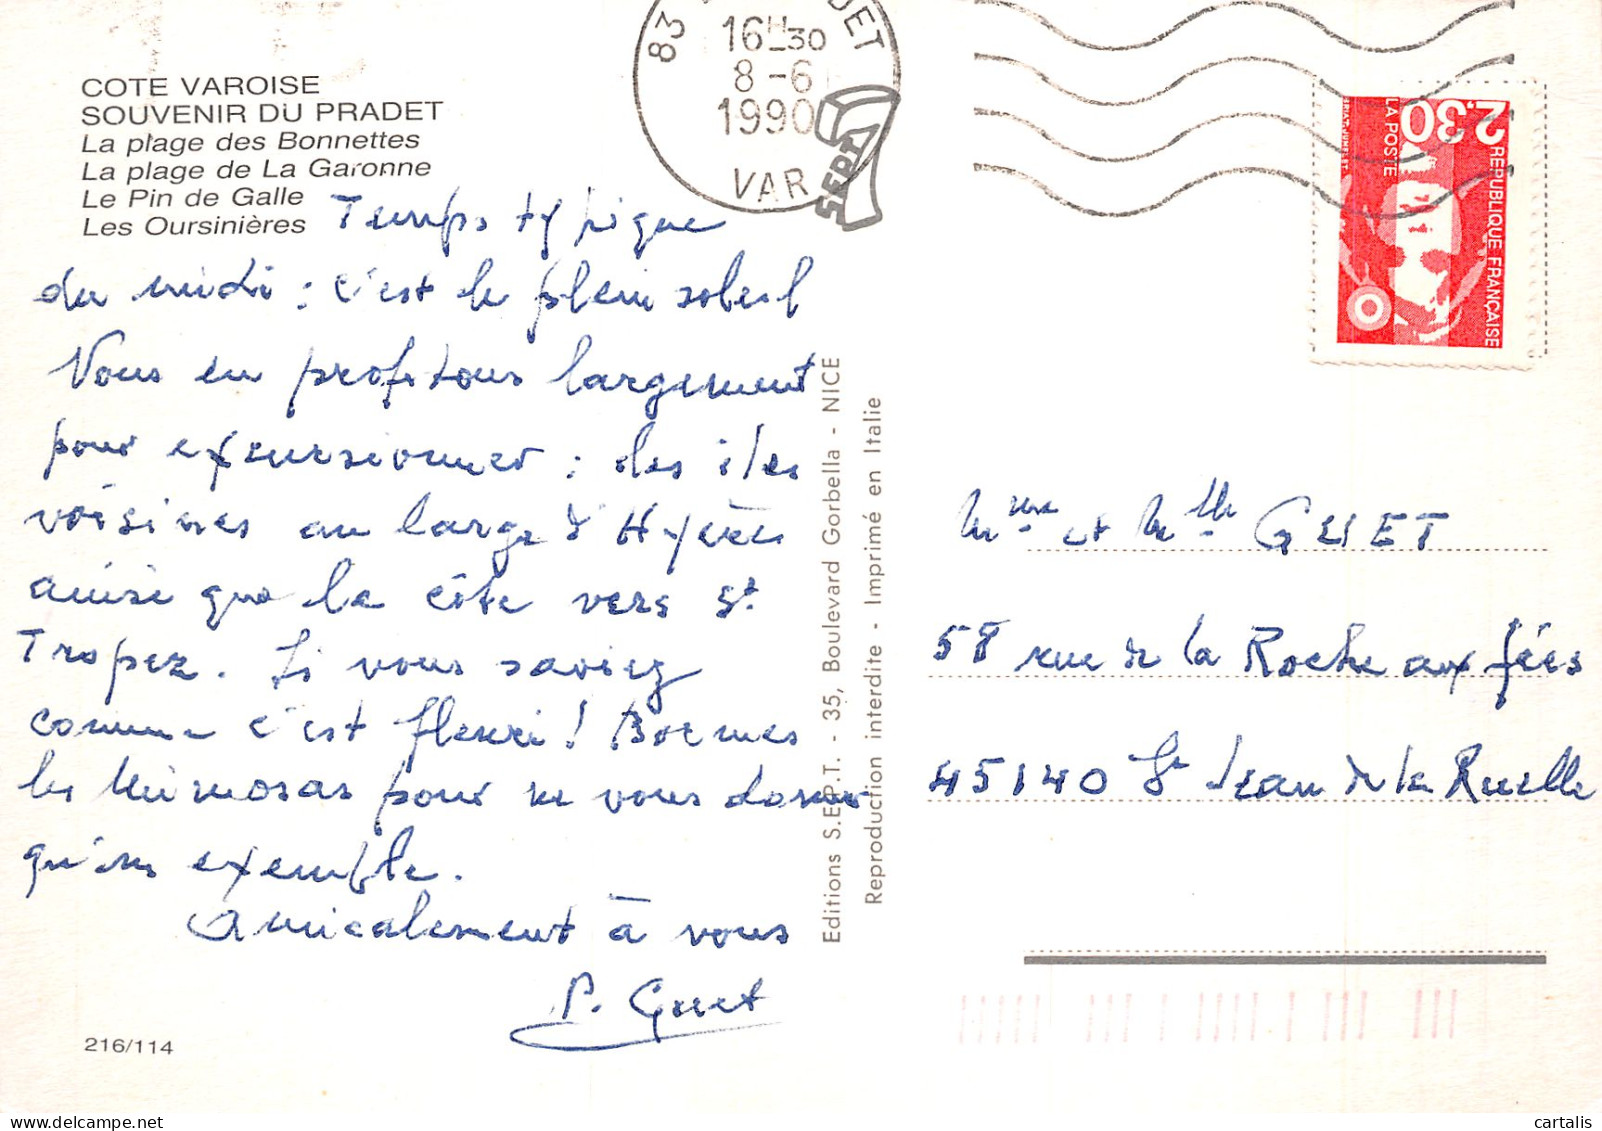 COTE VAROISE
SOUVENIR DU PRADET
La plage des Bonnettes
La plage de La Garonne
Le Pin de Galle
Les Oursinières
Temps typique
du midi : c'est le plein soleil
Nous en profitons largement
pour excursionner : les îles
voisines au large d'Hyères
ainsi que la côte vers St
Tropez. Si vous saviez
comme c'est fleuri ! Bormes
les Mimosas pour ne vous donner
qu'un exemple.
Amicalement à vous
P. Guet
216/114
Editions S.E.P.T. - 35, Boulevard Gorbella - NICE
Reproduction interdite - Imprimé en Italie
83
DET
16H30
8-6
1990
VAR
SEPT
2,30
LA POSTE
REPUBLIQUE FRANÇAISE
Mme et Mlle GUET
58 rue de la Roche aux fées
45140 St Jean de la Ruelle
cartalis
www.delcampe.net